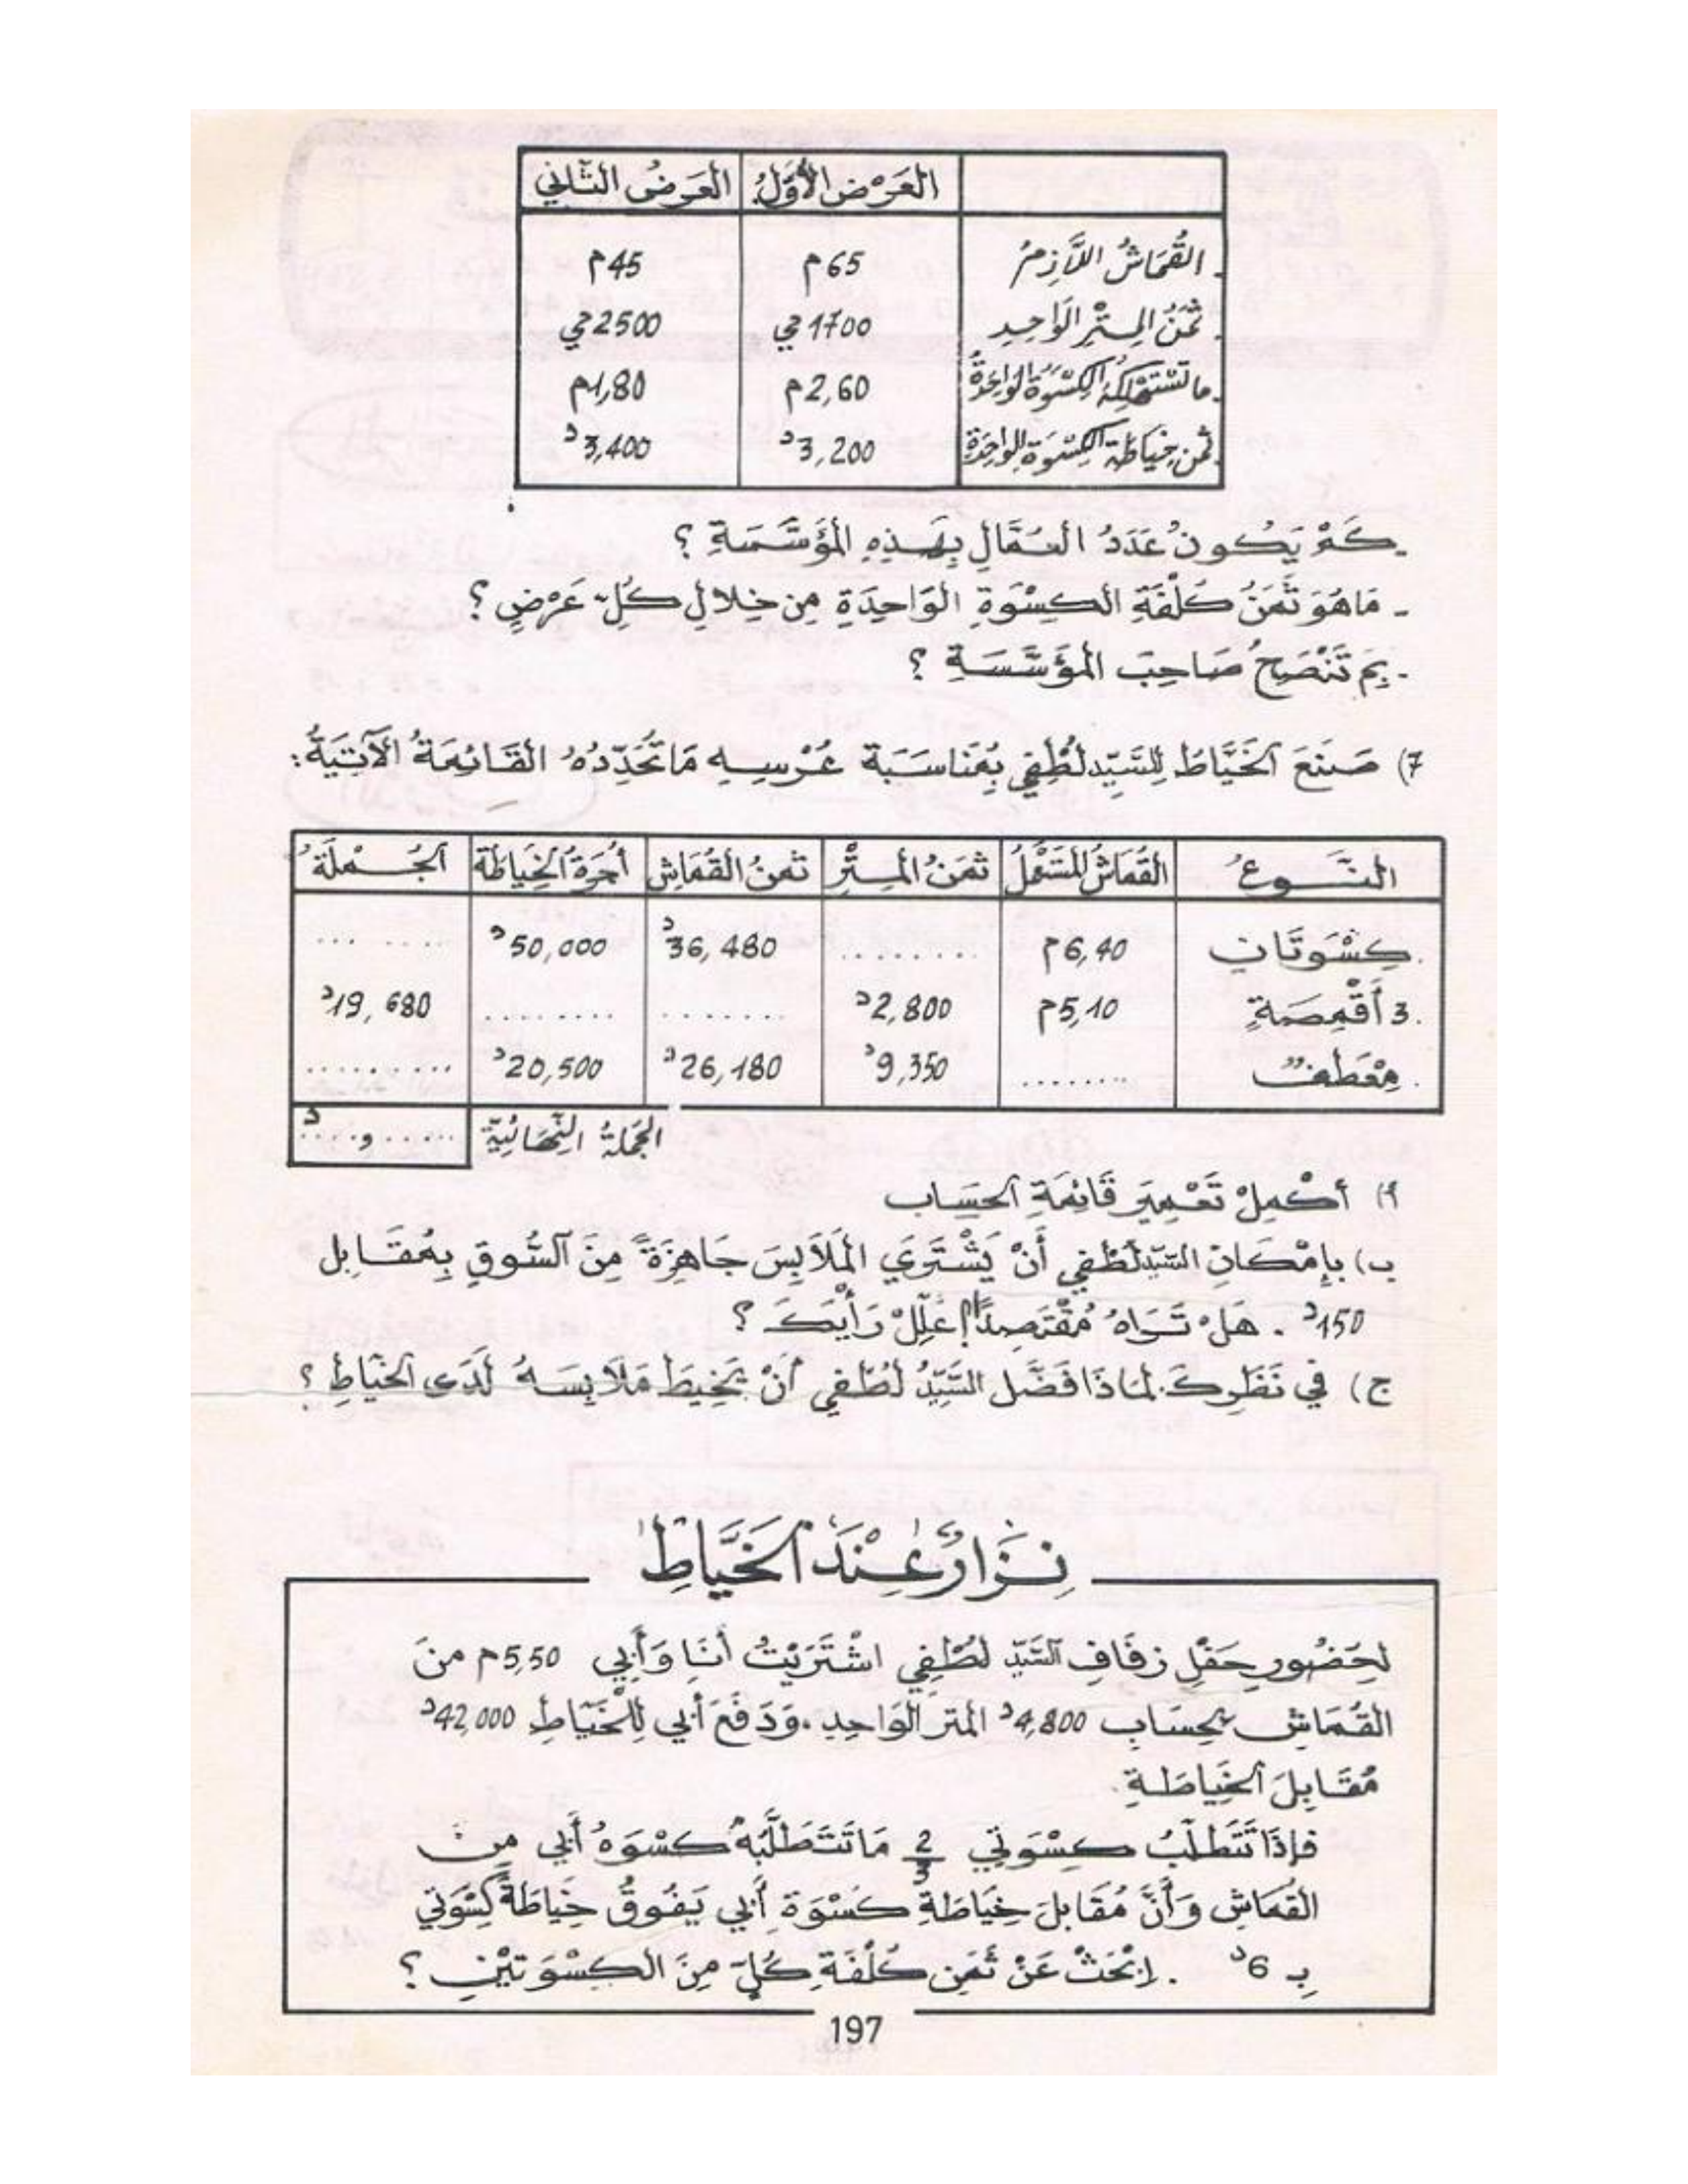 العَرْضُ الأَوَّلُ العَرضُ الثَّاني
- القُمَاشُ اللاَّزِمُ 65م 45م
- ثَمَنُ المِتْرِ الوَاحِدِ 1700مي 2500مي
- ما تَسْتَهْلِكُهُ الكِسْوَةُ الوَاحِدَةُ 2,60م 1,80م
- ثمن خِيَاطَةِ الكِسْوَةِ الوَاحِدَةِ 3,200د 3,400د
- كَمْ يَكُونُ عَدَدُ العُمَّالِ بِهَذِهِ المُؤَسَّسَةِ ؟
- مَا هُوَ ثَمَنُ كُلْفَةِ الكِسْوَةِ الوَاحِدَةِ مِن خِلالِ كُلِّ عَرْضٍ ؟
- بِمَ تَنْصَحُ صَاحِبَ المُؤَسَّسَةِ ؟
7) صَنَعَ الخَيَّاطُ لِلسَّيِّد لُطْفِي بِمُنَاسَبَة عُرْسِهِ مَا تُحَدِّدُهُ القَائِمَةُ الآتِيَةُ:
النَّوعُ القُمَاشُ المُسْتَعْمَلُ ثَمَنُ المِتْرِ ثَمنُ القُمَاشِ أُجْرَةُ الخِيَاطَة الجُمْلَةُ
. كِسْوَتَانِ 6,40م ........ 36,480د 50,000د ........
. 3 أَقْمِصَةٍ 5,10م 2,800د ....... ........ 19,680د
. مِعْطَفٌ ........ 9,350د 26,180د 20,500د .........
الجُملةُ النِّهَائِيّةُ ..... و....د
أ) أَكْمِلْ تَعْمِيرَ قَائِمَةِ الحِسَاب
ب) بِإِمْكَانِ السَّيِّد لُطْفِي أَنْ يَشْتَرِيَ المَلاَبِسَ جَاهِزَةً مِنَ السُّوقِ بِمُقَابِل
150د . هَلْ تَرَاهُ مُقْتَصِدًا؟ عَلِّلْ رَأْيَكَ ؟
ج) في نَظَرِكَ لمَاذَا فَضَّل السَّيِّدُ لُطْفِي أَنْ يَخِيطَ مَلاَبِسَهُ لَدَى الخَيَّاطِ ؟
نِزَارٌ عِنْدَ الخَيَّاطِ
لِحُضُورِ حَفْلِ زفَافِ السَّيِّد لُطْفِي اشْتَرَيْتُ أَنَا وَأَبِي 5,50م منَ
القُمَاش بِحِسَابِ 4,800د المتر الوَاحِدِ. وَدَفَعَ أَبي لِلْخَيَّاطِ 42,000د
مُقَابِلَ الخِيَاطَةِ.
فَإِذَا تَتَطَلَّبُ كِسْوَتِي 2/3 مَا تَتَطَلَّبُهُ كسْوَةُ أَبِي مِنَ
القُمَاشِ وَأَنَّ مُقَابلَ خِيَاطَةِ كسْوَة أَبِي يَفُوقُ خِيَاطَةَ كِسْوَتِي
بِـ 6د . اِبْحَثْ عَنْ ثَمَنِ كُلْفَةِ كُلٍّ مِنَ الكِسْوَتَيْنِ ؟
197